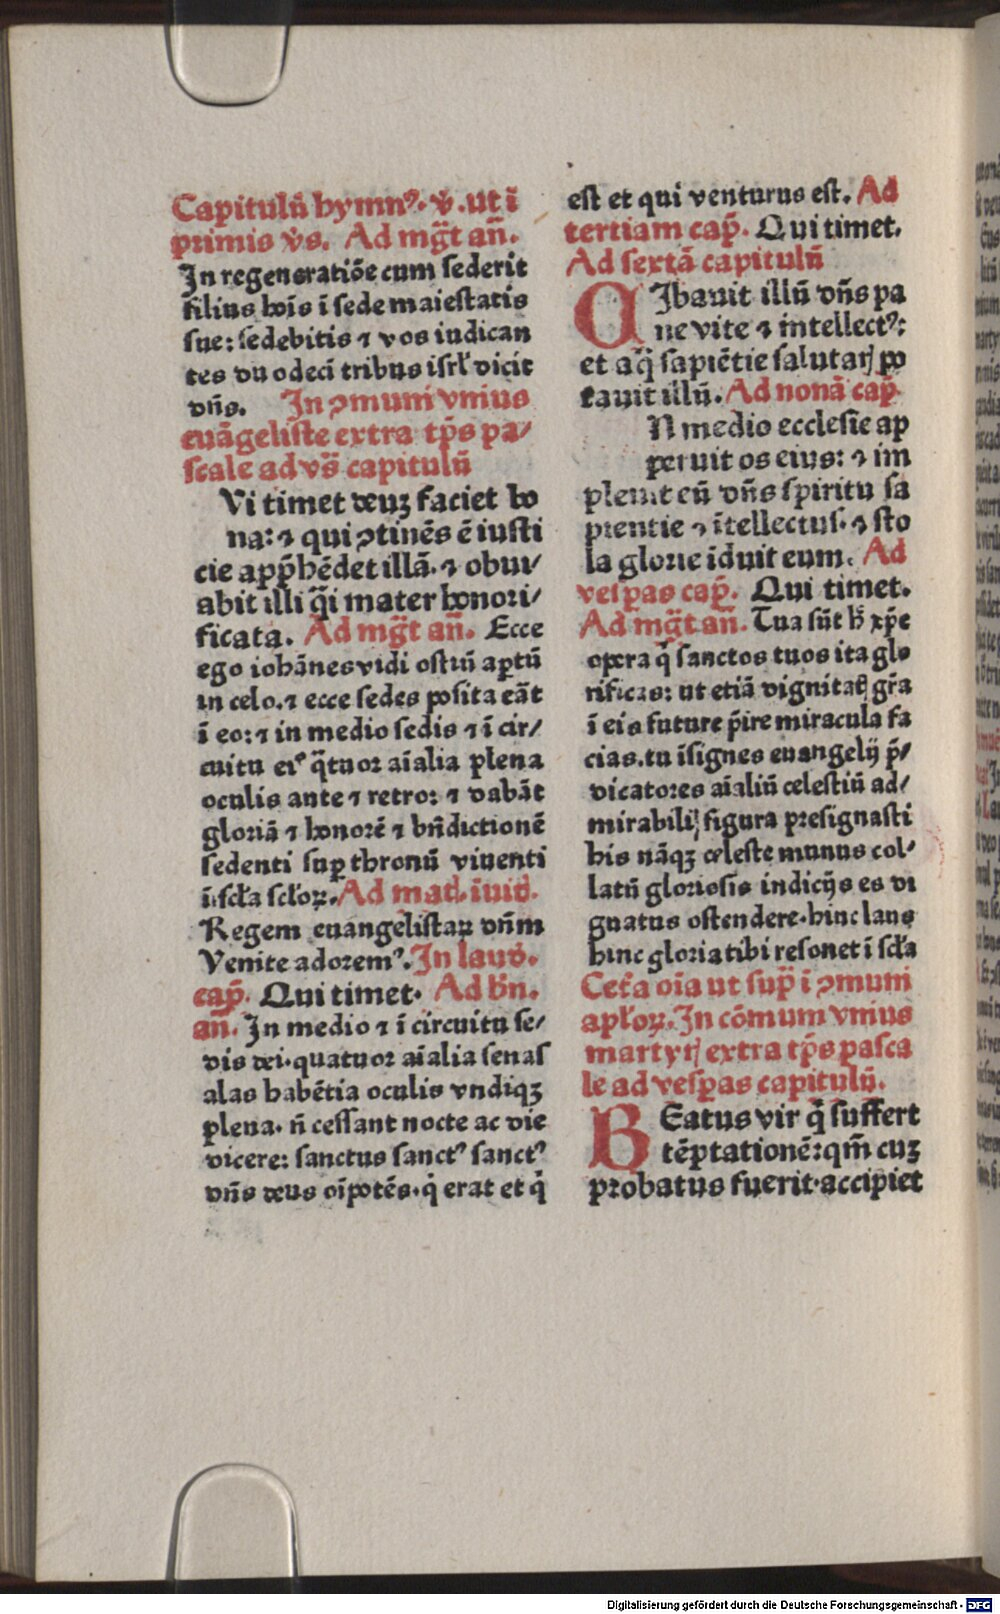 Capitulū hymnꝰ. v̓. ut ī
primis v̓s. Ad mg̅t an̄.
In regeneratiōe cum sederit
filius hoīs ī sede maiestatis
sue: sedebitis ⁊ vos iudican
tes duodeci tribus isrl̓ dicit
dn̄s. In ꝯmuni vnius
euāgeliste extra tp̄s pa/
scale ad vs̄ capitulū
Vi timet deuꝫ faciet bo
na: ⁊ qui ꝯtinēs ē iusti
cie app̄hēdet illā. ⁊ obui/
abit illi q̄i mater honori/
ficata. Ad mg̅t an̄. Ecce
ego iohānes vidi ostiū aꝑtū
in celo. ⁊ ecce sedes posita eāt
ī eo: ⁊ in medio sedis ⁊ ī cir/
cuitu eiꝰ q̄tuor aīalia plena
oculis ante ⁊ retro: ⁊ dabāt
gloriā ⁊ honorē ⁊ bn̄dictionē
sedenti suꝑ thronū viuenti
ī scl̓a scl̓oꝝ. Ad mad. īuid.
Regem euangelistaꝝ dn̄m
Venite adoremꝰ. In laud.
cap̄. Qui timet. Ad bn̄.
an̄. In medio ⁊ ī circuitu se/
dis dei. quatuor aīalia senas
alas habētia oculis vndiqꝫ
plena. n̄ cessant nocte ac die
dicere: sanctus sanctꝰ sanctꝰ
dn̄s deus oīpotēs. q̇ erat et q̇
est et qui venturus est. Ad
tertiam cap̄. Qui timet.
Ad sextā capitulū
CIbauit illū dn̄s pa
ne vite ⁊ intellectꝰ:
et aq̄ sapiētie salutarꝭ po
tauit illū. Ad nonā cap̄
N medio ecclesie ap
peruit os eius: ⁊ im
pleuit eū dn̄s spiritu sa
pientie ⁊ ītellectus. ⁊ sto
la glorie īduit eum. Ad
vesꝑas cap̄. Qui timet.
Ad mg̅t an̄. Tua sūt h̓ xp̄e
opera q̇ sanctos tuos ita glo
rificas: ut etiā dignitatꝭ gr̄a
ī eis future p̄ire miracula fa
cias. tu īsignes euangelij p̄/
dicatores aīaliū celestiū ad/
mirabilꝭ figura presignasti
his nāqꝫ celeste munus col/
latū gloriosis indicijs es di
gnatus ostendere. hinc laus
hinc gloria tibi resonet ī scl̓a
Cet̓a oīa ut sup̄ ī ꝯmuni
apl̓oꝝ. In cōmum vnius
martyrꝭ extra tp̄s pasca
le ad vesꝑas capitulū.
BEatus vir q̇ suffert
tēptationē: qm̄ cuꝫ
probatus fuerit. accipiet
Digitalisierung gefördert durch die Deutsche Forschungsgemeinschaft - DFG